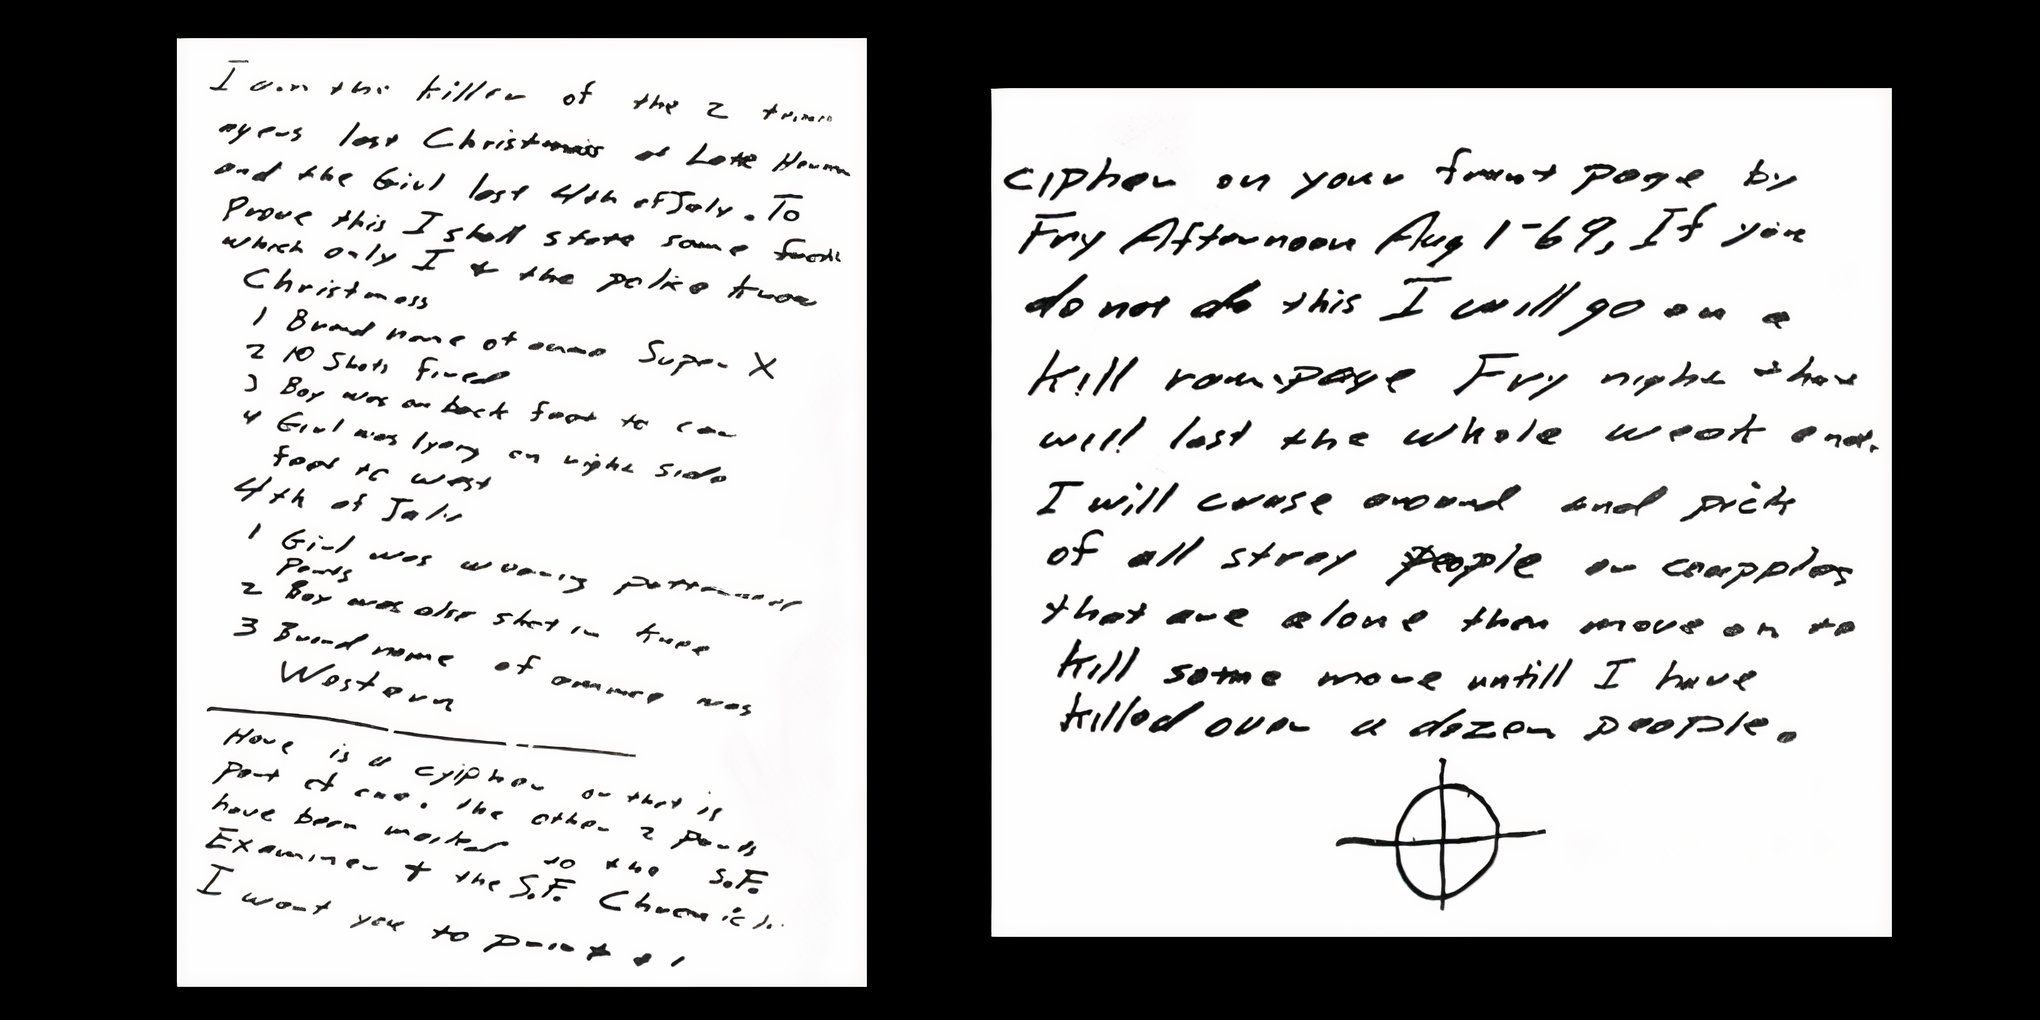 I am the killer of the 2 teen
agers last Christmass at Lake Herman
and the Girl last 4th of July. To
Prove this I shall state some facts
which only I + the police know
Christmass
1 Brand name of ammo Super X
2 10 Shots fired
3 Boy was on back feet to car
4 Girl was lyeing on right side
feet to west
4th of July
1 Girl was wearing patterned
pants
2 Boy was also shot in knee
3 Brand name of ammo was
Western
Here is a cyipher or that is
part of one. the other 2 parts
have been mailed to the S.F.
Examiner + the S.F. Chronicle
I want you to print
cipher on your frunt page by
Fry Afternoon Aug 1-69, If you
do not do this I will go on a
kill rampage Fry night that
will last the whole week end.
I will cruse around and pick
of all stray people or coupples
that are alone then move on to
kill some more untill I have
killed over a dozen people.